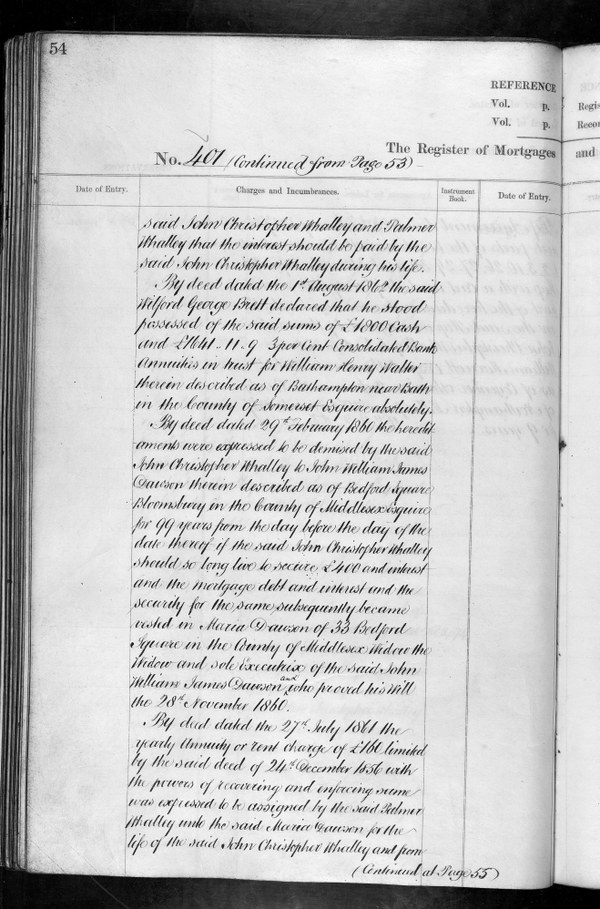 54
REFERENCE
Vol. p.
Vol. p.
The Register of Mortgages
No. 401 (Continued from Page 53)
Date of Entry.
Charges and Incumbrances.
Instrument Book.
Date of Entry.
said John Christopher Whalley and Palmer
Whalley that the interest should be paid by the
said John Christopher Whalley during his life.
By deed dated the 1st August 1862 the said
Wilford George Brett declared that he stood
possessed of the said sums of £1800 Cash
and £1641 - 11 - 9 3 per Cent Consolidated Bank
Annuities in trust for William Henry Walter
therein described as of Bathampton near Bath
in the County of Somerset Esquire absolutely.
By deed dated 29th February 1860 the heredit
aments were expressed to be demised by the said
John Christopher Whalley to John William James
Dawson therein described as of Bedford Square
Bloomsbury in the County of Middlesex Esquire
for 99 years from the day before the day of the
date thereof if the said John Christopher Whalley
should so long live to secure £400 and interest
and the mortgage debt and interest and the
security for the same subsequently became
vested in Maria Dawson of 33 Bedford
Square in the County of Middlesex Widow the
Widow and sole Executrix of the said John
William James Dawson and who proved his Will
the 28th November 1860.
By deed dated the 27th July 1861 the
yearly Annuity or rent charge of £160 limited
by the said deed of 24th December 1856 with
the powers of recovering and enforcing same
was expressed to be assigned by the said Palmer
Whalley unto the said Maria Dawson for the
life of the said John Christopher Whalley and from
(Continued at Page 55)
Regis
Recor
and